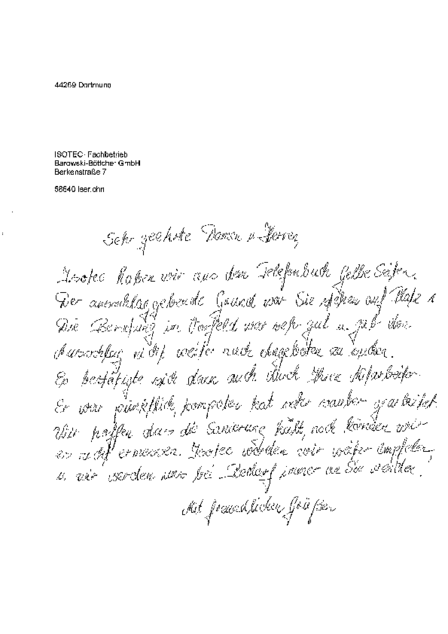 44269 Dortmund
ISOTEC- Fachbetrieb
Barowski-Böttcher GmbH
Berkenstraße 7
58640 Iserlohn
Sehr geehrte Damen u. Herren,
Isotec haben wir aus dem Telefonbuch Gelbe Seiten.
Der ausschlaggebende Grund war Sie stehen auf Platz 1
Die Beratung im Vorfeld war sehr gut u. gab den
Ausschlag nicht weiter nach Angeboten zu suchen.
Es bestätigte sich dann auch durch Ihren Mitarbeiter.
Er war pünktlich, kompetent hat sehr sauber gearbeitet.
Wir hoffen dass die Sanierung hält, noch können wir
es nicht ermessen. Isotec würden wir weiter empfehlen,
u. wir werden uns bei Bedarf immer an Sie wenden!
Mit freundlichen Grüßen